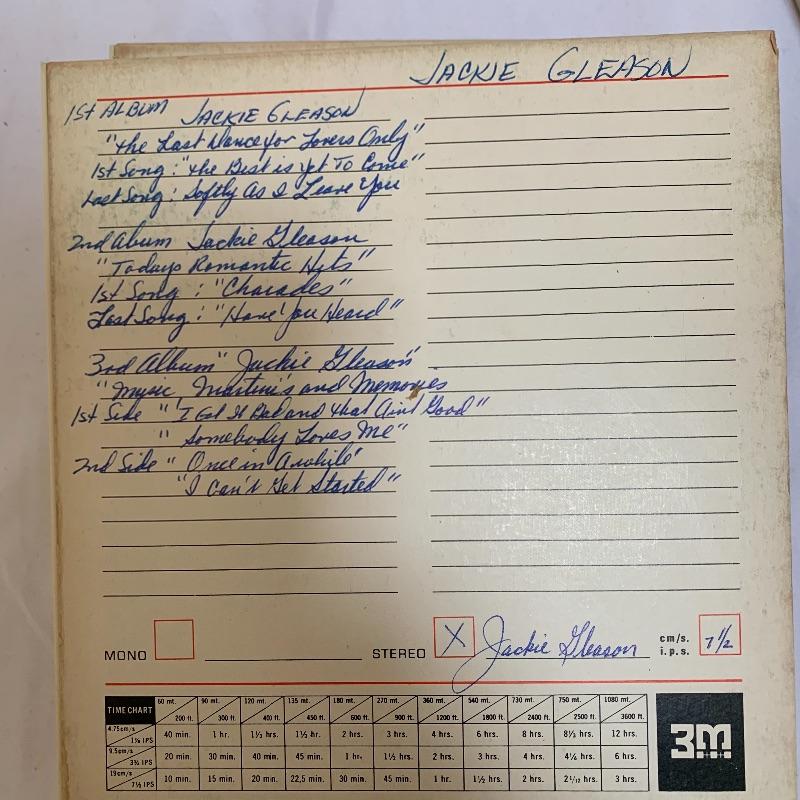 JACKIE GLEASON
1st ALBUM JACKIE GLEASON
"the Last Dance for Lovers Only"
1st Song : "the Best is yet To Come"
Last Song : Softly As I Leave You
2nd Album Jackie Gleason
"Todays Romantic Hits"
1st Song : "Charades"
Last Song : "Have You Heard"
3rd Album "Jackie Gleason"
"Music, Martini's and Memories
1st Side "I Got It Bad and that Ain't Good"
" Somebody Loves Me"
2nd Side " Once in Awhile"
"I Can't Get Started"
MONO STEREO X Jackie Gleason cm/s. i.p.s. 7 1/2
TIME CHART 60 mt. 200 ft. 90 mt. 300 ft. 120 mt. 400 ft. 135 mt. 450 ft. 180 mt. 600 ft. 270 mt. 900 ft. 360 mt. 1200 ft. 540 mt. 1800 ft. 730 mt. 2400 ft. 750 mt. 2500 ft. 1080 mt. 3600 ft.
4.75cm/s 1⅞ IPS 40 min. 1 hr. 1⅓ hrs. 1½ hr. 2 hrs. 3 hrs. 4 hrs. 6 hrs. 8 hrs. 8⅓ hrs. 12 hrs.
9.5cm/s 3¾ IPS 20 min. 30 min. 40 min. 45 min. 1 hr. 1½ hrs. 2 hrs. 3 hrs. 4 hrs. 4¼ hrs. 6 hrs.
19cm/s 7½ IPS 10 min. 15 min. 20 min. 22,5 min. 30 min. 45 min. 1 hr. 1½ hrs. 2 hrs. 2 1/12 hrs. 3 hrs.
3M